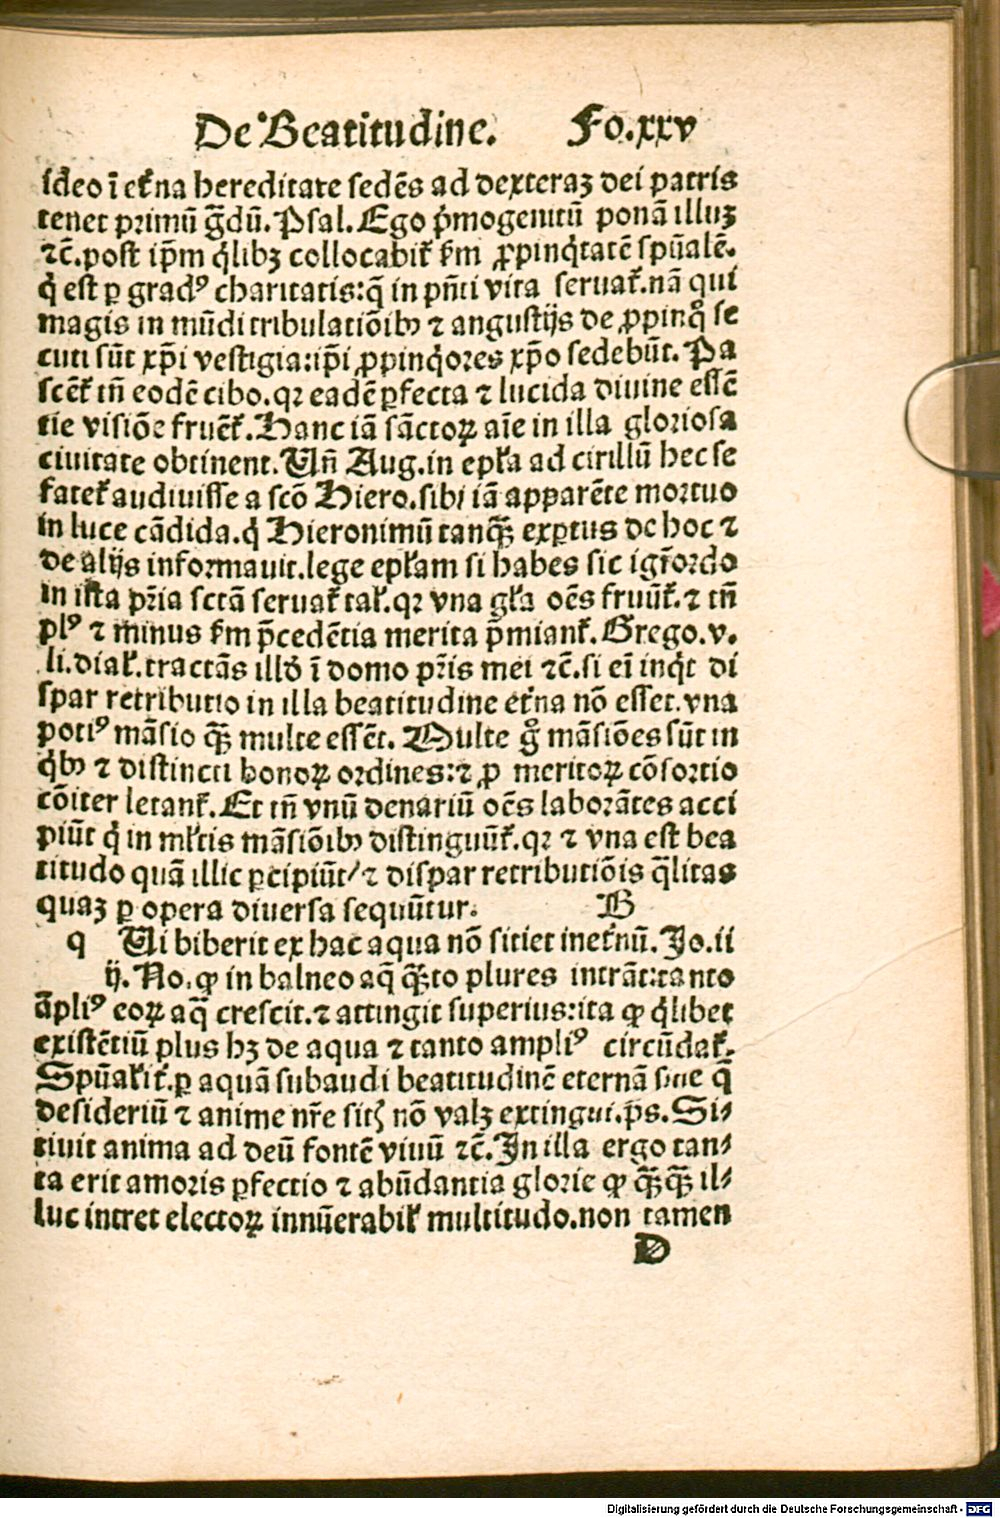 De Beatitudine. Fo.xxv
ideo ī et̃na hereditate sedēs ad dexteraꝫ dei patris
tenet primū g̃dū. Psal. Ego p̃mogenitū ponā illuꝫ
⁊c̃. post ip̃m q̇libꝫ collocabit᷑ ẜm ꝓpinq̇tatē sp̃ualē.
q̇ est ꝑ gradꝰ charitatis: q̃ in pñti vita seruat᷑. nā qui
magis in mūdi tribulatiōibꝰ ⁊ angustijs de ꝓpinq̊ se
cuti sūt xp̃i vestigia: ip̃i ꝓpinq̇ores xp̃o sedebūt. Pa
scēt᷑ iñ eodē cibo. qꝛ eadē ꝑfecta ⁊ lucida diuine essē
tie visiōe fruēt᷑. Hanc iā sāctoꝝ aīe in illa gloriosa
ciuitate obtinent. Uñ Aug. in epl̃a ad cirillū hec se
fatet᷑ audiuisse a scō Hiero. sibi iā apparēte mortuo
in luce cādida. q̇ Hieronimū tanq̃ꝫ exꝑtus de hoc ⁊
de alijs informauit. lege epl̃am si habes sic igr̃ ordo
in ista pr̃ia sctā seruat᷑ tal̃. qꝛ vna gl̃a oēs fruūt᷑. ⁊ tñ
plꝰ ⁊ minus ẜm p̃cedētia merita p̃miant᷑. Grego. v.
li. dial̃. tractās illḋ ī domo pr̃is mei ⁊c̃. si eī inq̇t di
spar retributio in illa beatitudine et̃na nō esset. vna
potiꝰ māsio q̃ꝫ multe essēt. Multe g̊ māsiōes sūt in
q̇bꝰ ⁊ distincti bonoꝝ ordines: ⁊ ꝓ meritoꝝ cōsortio
cōiter letant᷑. Et tñ vnū denariū oēs laborātes acci
piūt q̇ in ml̃tis māsiōibꝰ distinguūt᷑. qꝛ ⁊ vna est bea
titudo quā illic ꝑcipiūt/ ⁊ dispar retributiōis q̃litas
quaꝫ ꝑ opera diuersa sequūtur. B
q Ui biberit ex hac aqua nō sitiet inet̃nū. Jo. ii
ij. No. ꝙ in balneo aq̃ q̃ꝫto plures intrāt: tanto
āpliꝰ eoꝝ aq̃ crescit. ⁊ attingit superius: ita ꝙ q̇libet
existētiū plus hꝫ de aqua ⁊ tanto ampliꝰ circūdat᷑.
Sp̃ualit᷑. ꝑ aquā subaudi beatitudinē eternā sine q̃
desideriū ⁊ anime nr̃e sitꝭ nō valꝫ extingui. ps. Si⸗
tiuit anima ad deū fontē viuū ⁊c̃. In illa ergo tan⸗
ta erit amoris ꝑfectio ⁊ abūdantia glorie ꝙ q̃ꝫq̃ꝫ il⸗
luc intret electoꝝ innūerabil̃ multitudo. non tamen
D
Digitalisierung gefördert durch die Deutsche Forschungsgemeinschaft - DFG